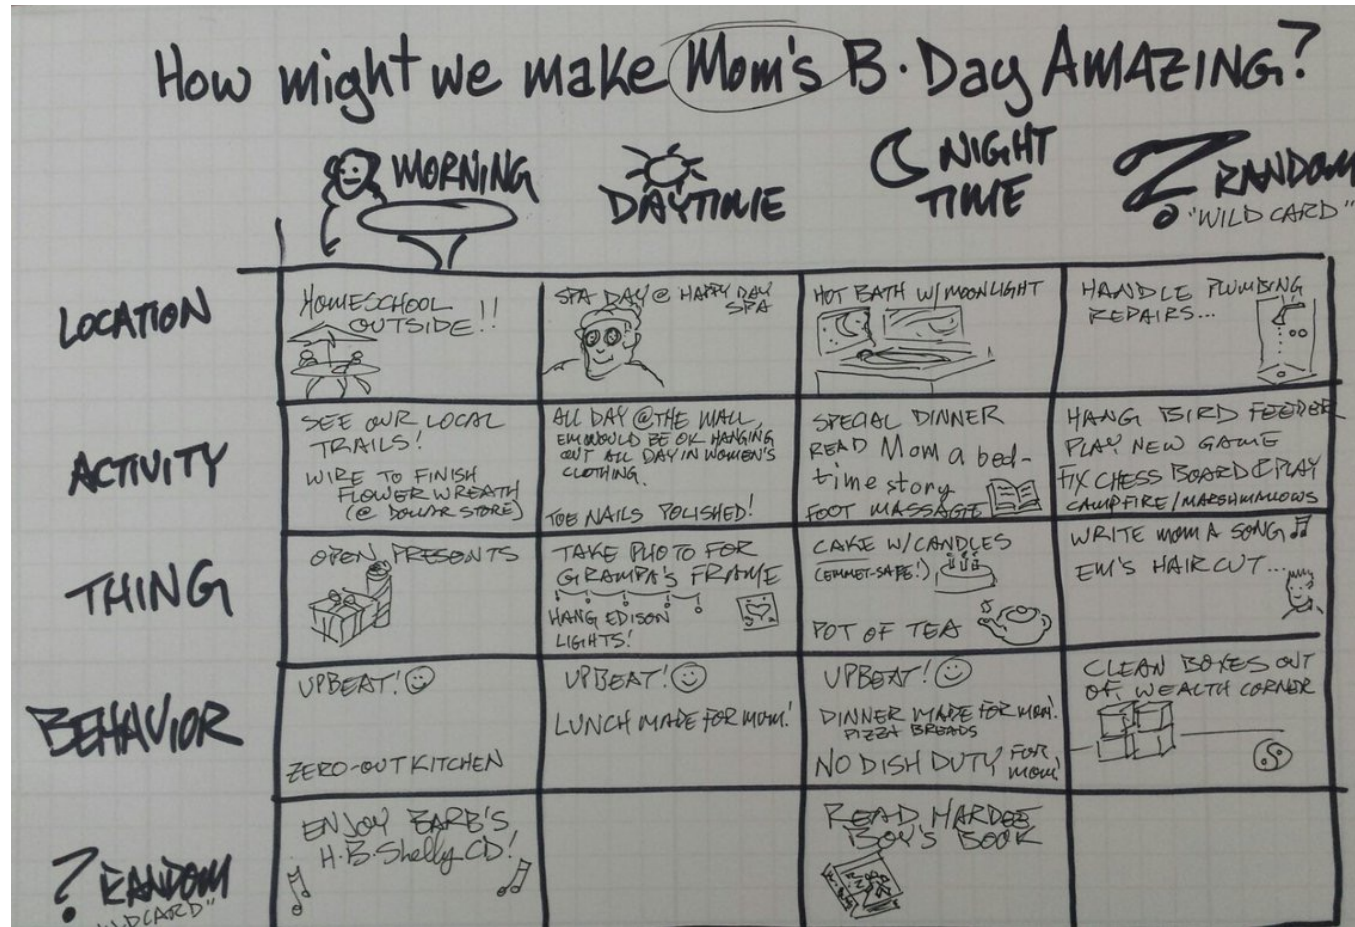 How might we make Mom's B·Day AMAZING?
MORNING
DAYTIME
NIGHT
TIME
? RANDOM
"WILD CARD"
LOCATION
HOMESCHOOL
OUTSIDE!!
SPA DAY @ HAPPY DAY
SPA
HOT BATH W/MOONLIGHT
HANDLE PLUMBING
REPAIRS...
ACTIVITY
SEE OUR LOCAL
TRAILS!
WIRE TO FINISH
FLOWER WREATH
(@ DOLLAR STORE)
ALL DAY @THE MALL,
EM WOULD BE OK HANGING
OUT ALL DAY IN WOMEN'S
CLOTHING.
TOE NAILS POLISHED!
SPECIAL DINNER
READ Mom a bed-
time story
FOOT MASSAGE
HANG BIRD FEEDER
PLAY NEW GAME
FIX CHESS BOARD & PLAY
CAMPFIRE/MARSHMALLOWS
THING
OPEN PRESENTS
TAKE PHOTO FOR
GRAMPA'S FRAME
HANG EDISON
LIGHTS!
CAKE W/CANDLES
(EMMET-SAFE!)
POT OF TEA
WRITE MOM A SONG
EM'S HAIRCUT...
BEHAVIOR
UPBEAT!
ZERO-OUT KITCHEN
UPBEAT!
LUNCH MADE FOR MOM!
UPBEAT!
DINNER MADE FOR MOM!
PIZZA BREADS
NO DISH DUTY FOR
MOM!
CLEAN BOXES OUT
OF WEALTH CORNER
? RANDOM
"WILDCARD"
ENJOY BARB'S
H.B. Shelly CD!
READ HARDEE
BOY'S BOOK